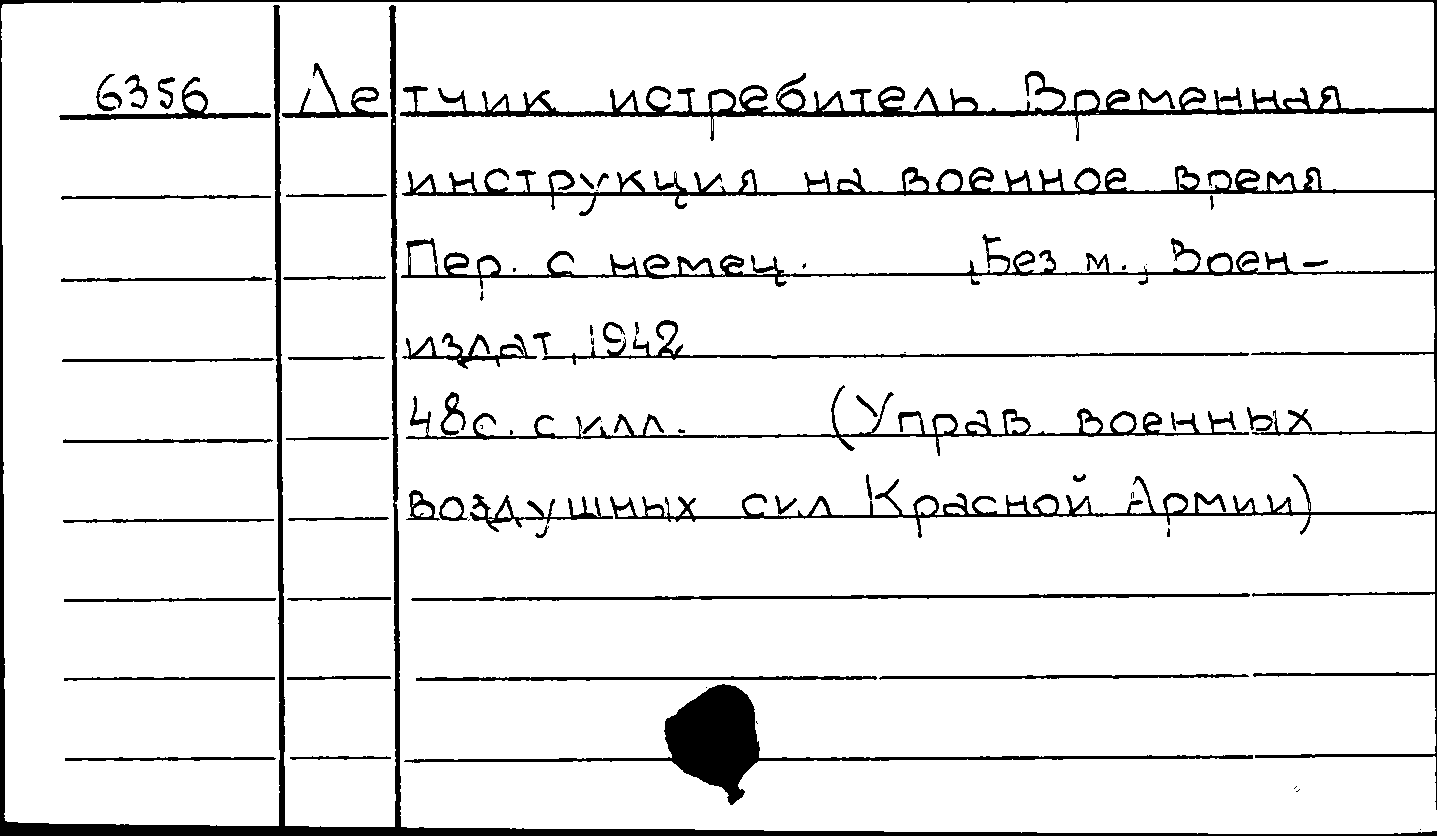 6356 Летчик истребитель. Временная
инструкция на военное время
Пер. с немец. Без м., Воен-
издат, 1942
48с. с илл. (Управ. военных
воздушных сил Красной Армии)